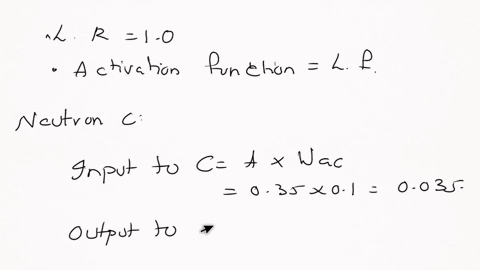 . L. R = 1.0
• Activation function = L. f.
Neutron C:
Input to C = A x Wac
= 0.35 x 0.1 = 0.035.
Output to